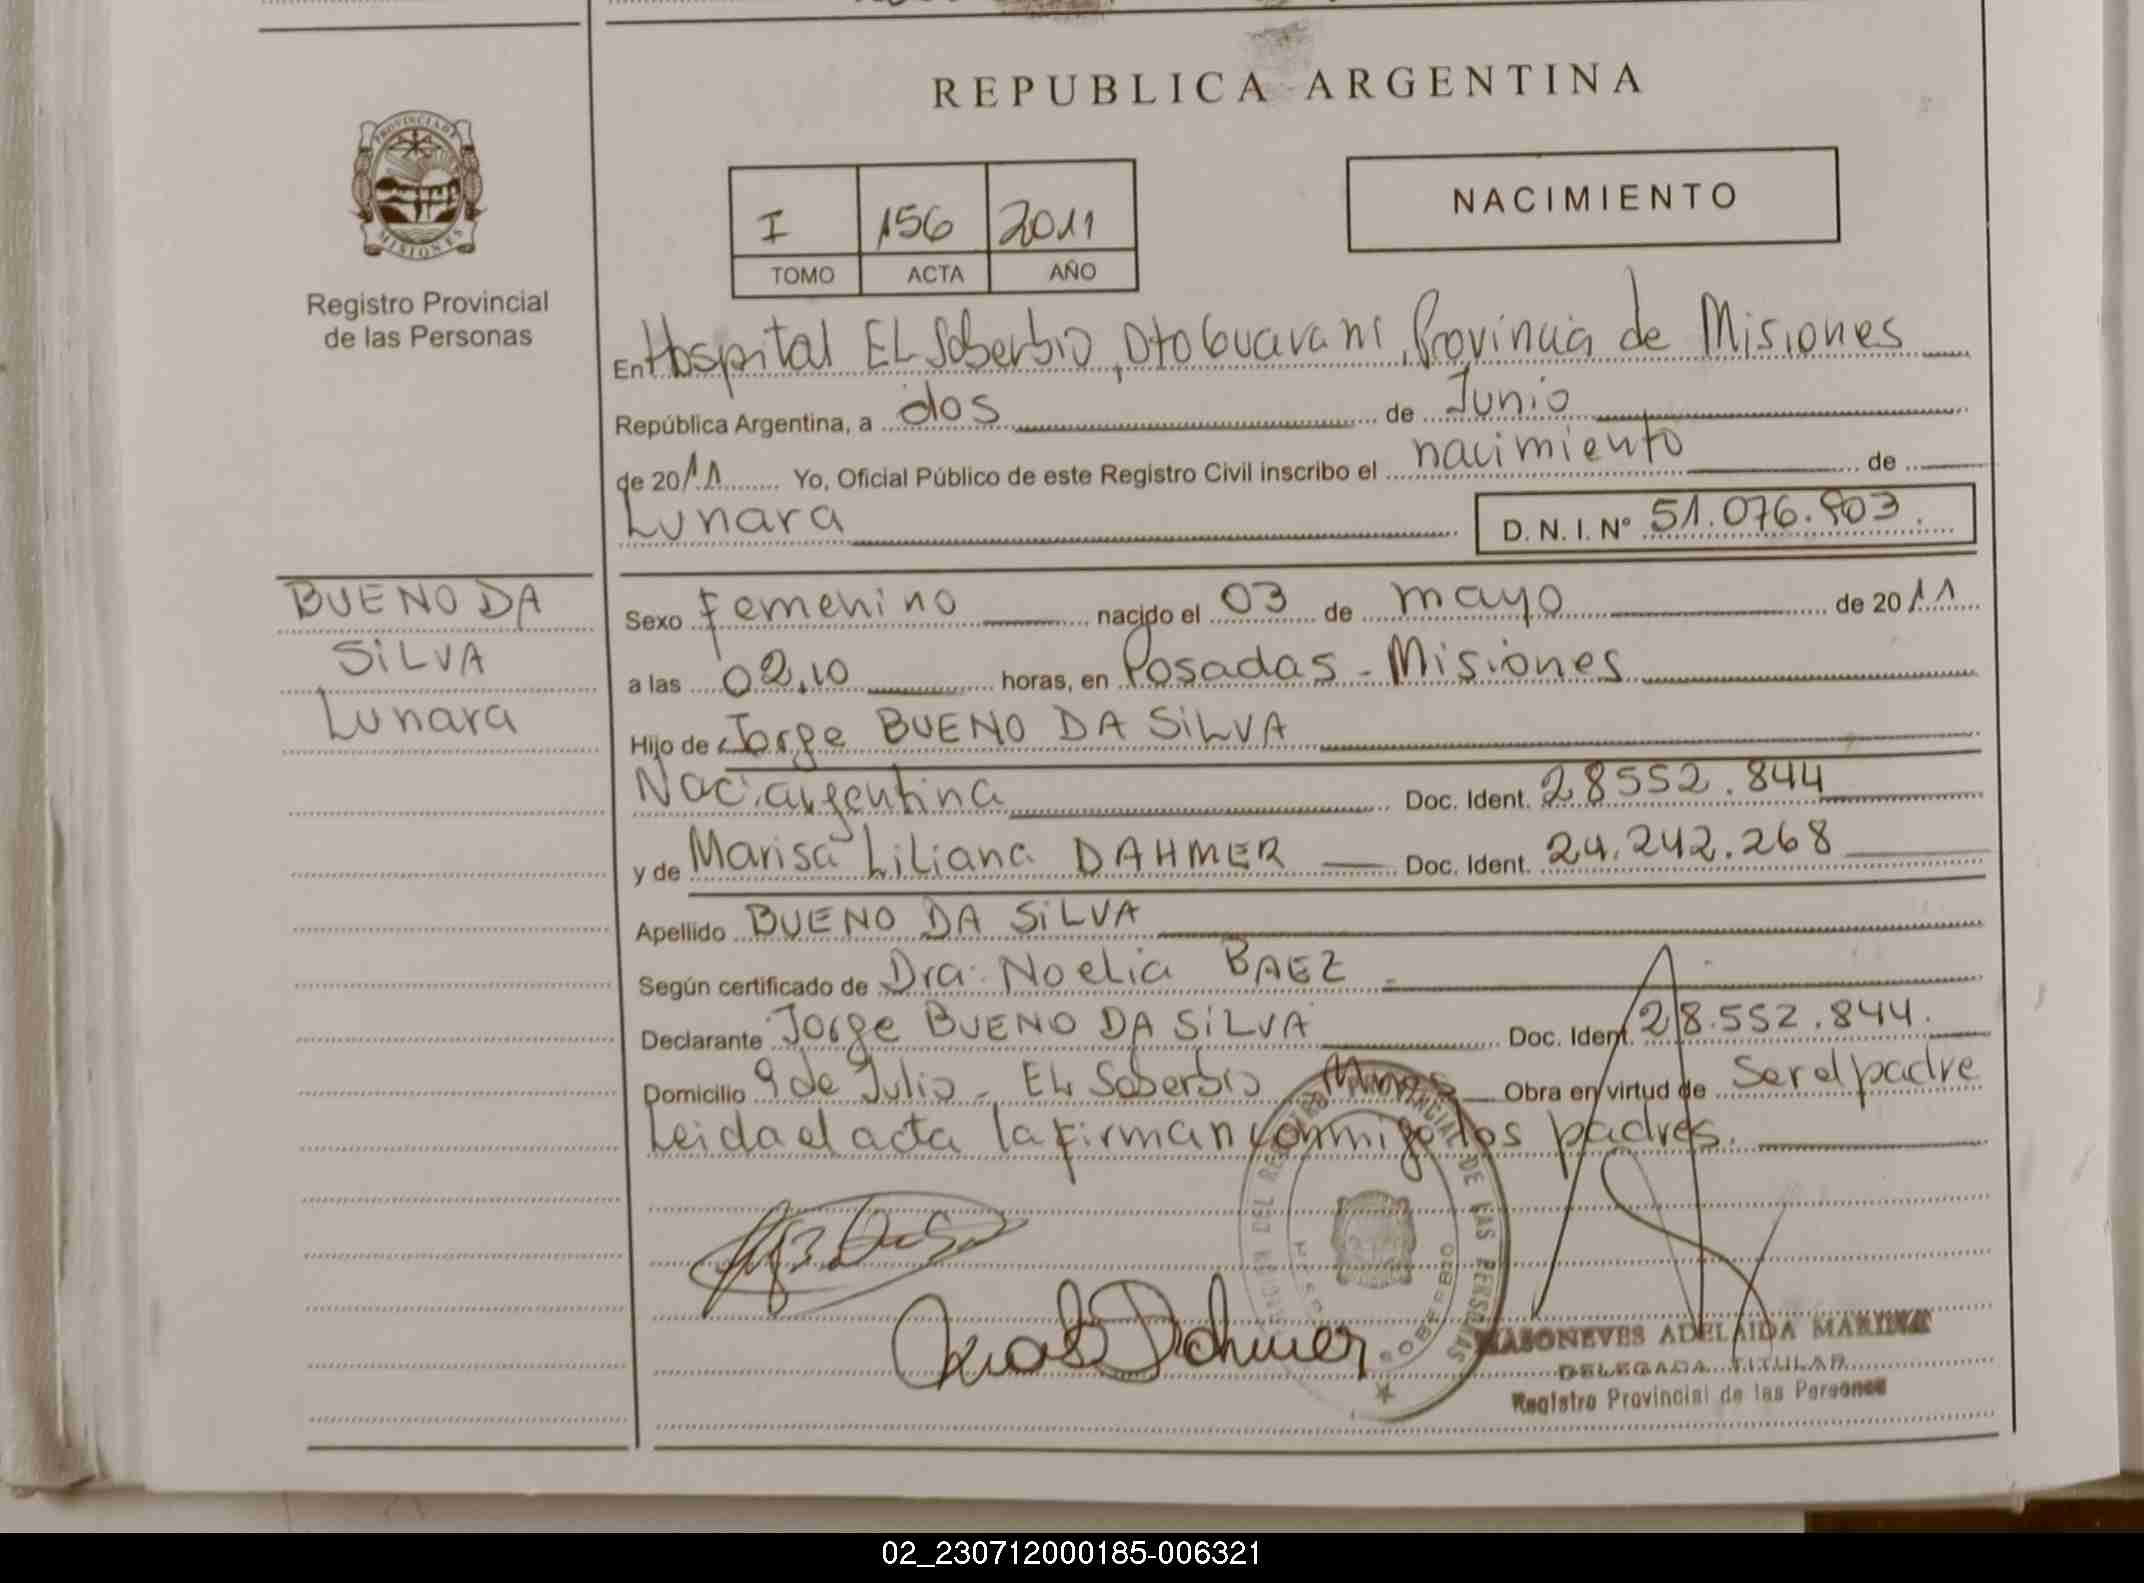 REPUBLICA ARGENTINA
PROVINCIA DE
MISIONES
Registro Provincial
de las Personas
NACIMIENTO
I 156 2011
TOMO ACTA AÑO
En Hospital EL Soberbio, Dto Guarani, Provincia de Misiones
República Argentina, a dos de Junio
de 2011 Yo, Oficial Público de este Registro Civil inscribo el nacimiento de
Lunara D. N. I. Nº 51.076.903.
BUENO DA
SILVA
Lunara
Sexo Femenino nacido el 03 de mayo de 2011
a las 02.10 horas, en Posadas - Misiones
Hijo de Jorge BUENO DA SILVA
Nac. argentina Doc. Ident. 28552.844
y de Marisa Liliana DAHMER Doc. Ident. 24.242.268
Apellido BUENO DA SILVA
Según certificado de Dra. Noelia BAEZ
Declarante Jorge BUENO DA SILVA Doc. Ident. 28.552.844.
Domicilio 9 de Julio - EL Soberbio Mnes Obra en virtud de Ser el padre
Leida el acta la firman conmigo los padres.
DEL REGISTRO PROVINCIAL DE LAS PERSONAS
SOBERBIO
Dahmer
MASONEVES ADELAIDA MARINA
DELEGADA TITULAR
Registro Provincial de las Personas
02_230712000185-006321